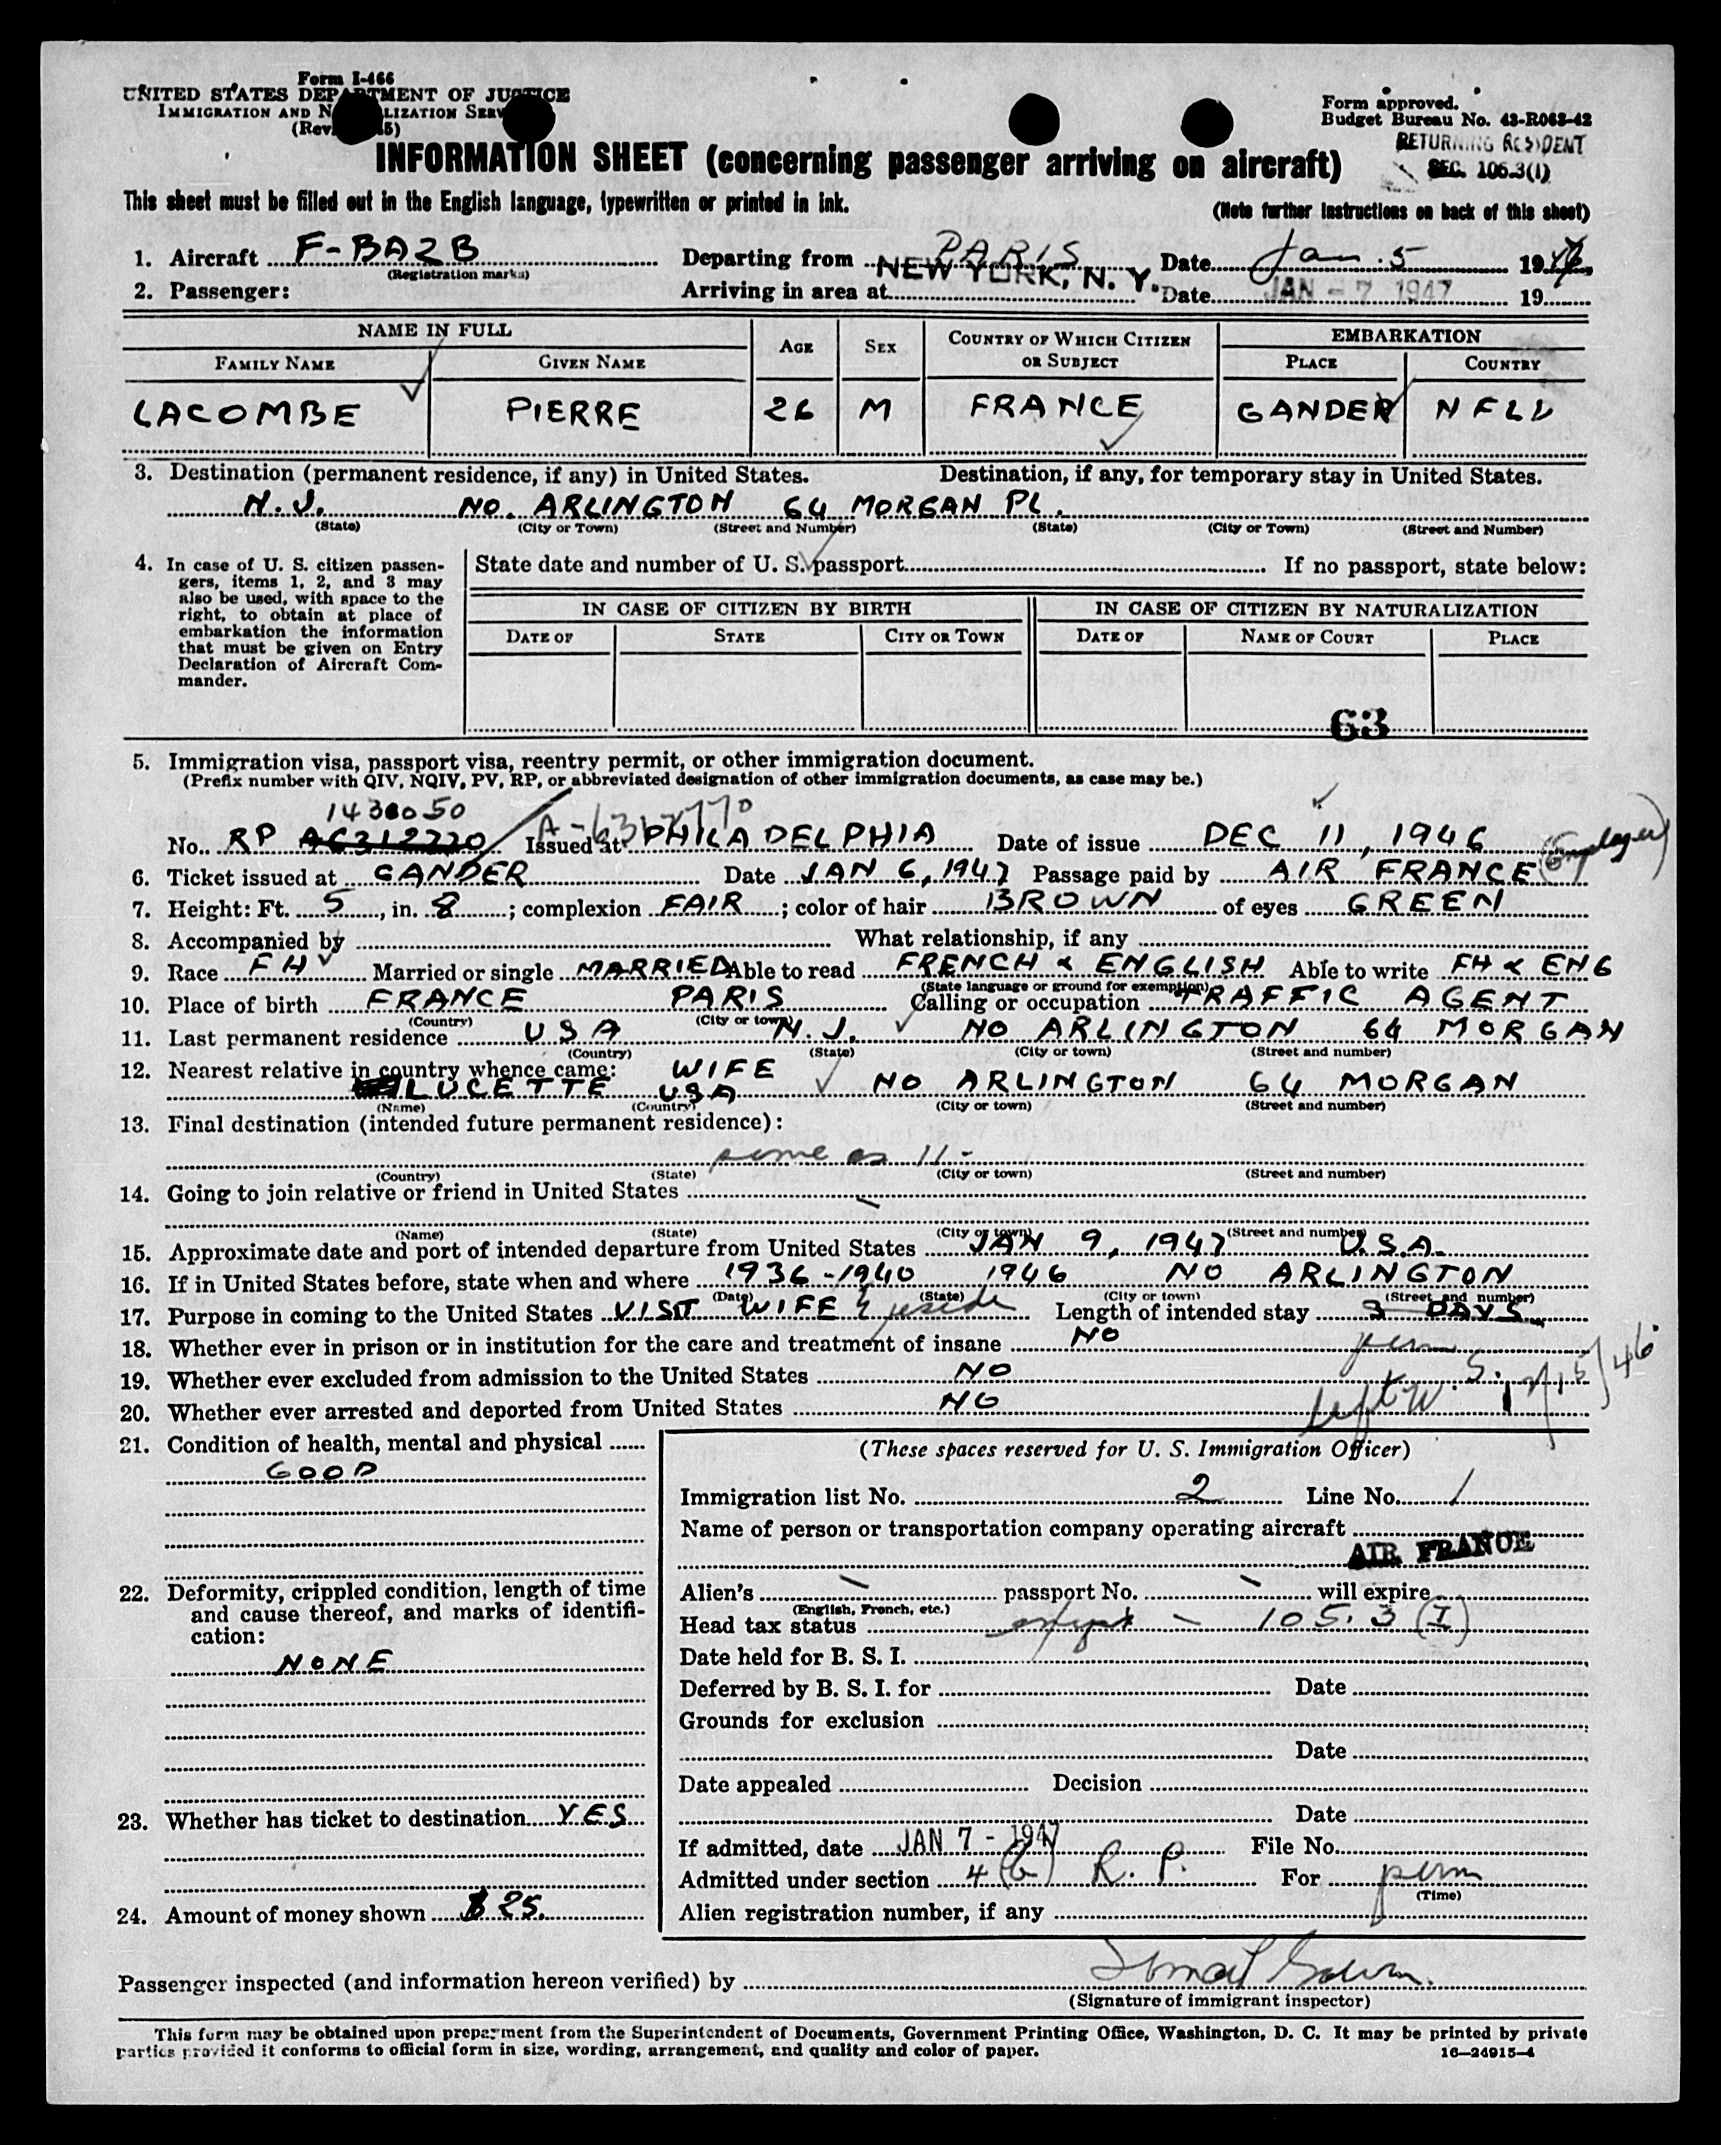 Form I-466
UNITED STATES DEPARTMENT OF JUSTICE
IMMIGRATION AND NATURALIZATION SERVICE
(Rev. 5)
Form approved.
Budget Bureau No. 43-R063-42
RETURNING RESIDENT
SEC. 106.3(1)
INFORMATION SHEET (concerning passenger arriving on aircraft)
This sheet must be filled out in the English language, typewritten or printed in ink.
(Note further instructions on back of this sheet)
1. Aircraft F-BAZB Departing from PARIS Date Jan. 5 1947
(Registration marks)
2. Passenger: Arriving in area at NEW YORK, N. Y. Date JAN - 7 1947 19
NAME IN FULL AGE SEX COUNTRY OF WHICH CITIZEN OR SUBJECT EMBARKATION
FAMILY NAME GIVEN NAME PLACE COUNTRY
LACOMBE PIERRE 26 M FRANCE GANDER NFLD
3. Destination (permanent residence, if any) in United States. Destination, if any, for temporary stay in United States.
N.J. NO. ARLINGTON 64 MORGAN PL.
(State) (City or Town) (Street and Number) (State) (City or Town) (Street and Number)
4. In case of U. S. citizen passengers, items 1, 2, and 3 may also be used, with space to the right, to obtain at place of embarkation the information that must be given on Entry Declaration of Aircraft Commander.
State date and number of U. S. passport If no passport, state below:
IN CASE OF CITIZEN BY BIRTH IN CASE OF CITIZEN BY NATURALIZATION
DATE OF STATE CITY OR TOWN DATE OF NAME OF COURT PLACE
63
5. Immigration visa, passport visa, reentry permit, or other immigration document.
(Prefix number with QIV, NQIV, PV, RP, or abbreviated designation of other immigration documents, as case may be.)
1430050 A-6312770
No. RP A6312770 Issued at PHILADELPHIA Date of issue DEC 11, 1946
6. Ticket issued at GANDER Date JAN 6, 1947 Passage paid by AIR FRANCE (Employer)
7. Height: Ft. 5, in. 8; complexion FAIR; color of hair BROWN of eyes GREEN
8. Accompanied by What relationship, if any
9. Race FH Married or single MARRIED Able to read FRENCH & ENGLISH Able to write FH & ENG
(State language or ground for exemption)
10. Place of birth FRANCE PARIS Calling or occupation TRAFFIC AGENT
(Country) (City or town)
11. Last permanent residence USA N.J. NO ARLINGTON 64 MORGAN
(Country) (State) (City or town) (Street and number)
12. Nearest relative in country whence came: WIFE
LUCETTE USA NO ARLINGTON 64 MORGAN
(Name) (Country) (City or town) (Street and number)
13. Final destination (intended future permanent residence):
same as 11-
(Country) (State) (City or town) (Street and number)
14. Going to join relative or friend in United States
(Name) (State) (City or town) (Street and number)
15. Approximate date and port of intended departure from United States JAN 9, 1947 U.S.A.
16. If in United States before, state when and where 1936-1940 1946 NO ARLINGTON
(Date) (State) (City or town) (Street and number)
17. Purpose in coming to the United States VISIT WIFE & reside Length of intended stay 3 DAYS
perm
18. Whether ever in prison or in institution for the care and treatment of insane NO
19. Whether ever excluded from admission to the United States NO
left U.S.
20. Whether ever arrested and deported from United States NO
21. Condition of health, mental and physical
GOOD
22. Deformity, crippled condition, length of time and cause thereof, and marks of identification:
NONE
23. Whether has ticket to destination YES
24. Amount of money shown $25.
(These spaces reserved for U. S. Immigration Officer)
Immigration list No. 2 Line No. 1
Name of person or transportation company operating aircraft
AIR FRANCE
Alien's passport No. will expire
(English, French, etc.)
Head tax status exempt - 105.3 (I)
Date held for B. S. I.
Deferred by B. S. I. for Date
Grounds for exclusion
Date
Date appealed Decision
Date
If admitted, date JAN 7 - 1947 File No.
Admitted under section 4(b) R. P. For perm
(Time)
Alien registration number, if any
Passenger inspected (and information hereon verified) by
(Signature of immigrant inspector)
This form may be obtained upon prepayment from the Superintendent of Documents, Government Printing Office, Washington, D. C. It may be printed by private
parties provided it conforms to official form in size, wording, arrangement, and quality and color of paper.
16—24915-4